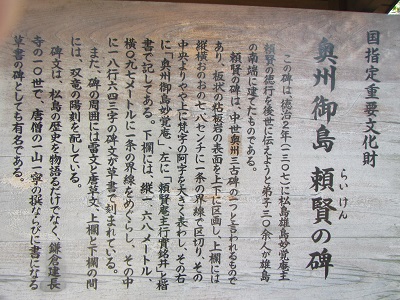 国指定重要文化財
奥州御島 頼賢の碑
らいけん
この碑は、徳治2年(一三〇七)に松島雄島妙覚庵主
頼賢の徳行を後世に伝えようと弟子三〇余人が雄島
の南端に建てたものである。
頼賢の碑は、中世奥州三古碑の一つと言われるもので
あり、板状の粘板岩の表面を上下に区画し、上欄には
縦横おのおの七八センチに一条の界線で区切り、その
中央よりやや上に梵字の阿字を大きく表わし、その右
に「奥州御島妙覚庵」、左に「頼賢庵主行實銘并」と楷
書で記してある。下欄には、縦一・六八メートル、
横〇・九七メートルに一条の界線をめぐらし、その中
に一八行六四三字の碑文が草書で刻まれている。
また、碑の周囲には雷文と唐草文、上欄と下欄の間
には、双竜の陽刻を配している。
碑文は、松島の歴史を物語るだけでなく、鎌倉建長
寺の一〇世で、唐僧の一山一寧の撰ならびに書になる
草書の碑としても有名である。